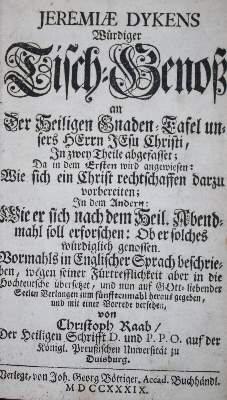 JEREMIÆ DYKENS
Würdiger
Tisch-Genoß
an
Der Heiligen Gnaden-Tafel un-
sers HErrn JEsu Christi,
In zwey Theile abgefasset;
Da in dem Ersten wird angewiesen:
Wie sich ein Christ rechtschaffen darzu
vorbereiten;
In dem Andern:
Wie er sich nach dem Heil. Abend-
mahl soll erforschen: Ob er solches
würdiglich genossen.
Vormahls in Englischer Sprach beschrie-
ben, wegen seiner Fürtrefflichkeit aber in die
Hochteutsche übersetzet, und nun auf GOtt-liebender
Seelen Verlangen zum fünfftenmahl heraus gegeben,
und mit einer Vorrede versehen,
von
Christoph Raab,
Der Heiligen Schrifft D. und P. P. O. auf der
Königl. Preußischen Universität zu
Duisburg.
Verlegt, von Joh. Georg Böttiger, Accad. Buchhändl.
MDCCXXXIX.